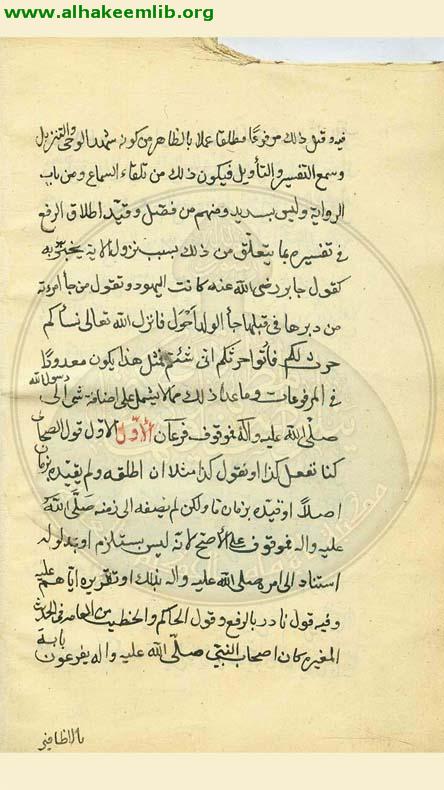 www.alhakeemlib.org
فيه و قيل ذلك مرفوعًا مطلقا عملا بالظاهر من كونه شهد الوحي والتنزيل
و سمع التفسير و التأويل فيكون ذلك من تلقاء السماع و من باب
الرواية و ليس بسديد و منهم من فصّل و قيّد اطلاق الرفع
في تفسيره بما يتعلّق من ذلك بسبب نزول الاية يخبر به
كقول جابر رضى الله عنه كانت اليهود و تقول من جا امرءته
من دبرها في قبلها جأ الولد احول فانزل الله تعالى نساكم
حرث لكم فأتوا حرثكم انى شئتم فمثل هذا يكون معدودًا
في المرفوعات و ما عدا ذلك ممالا يشمل على اضافة شئ الى رسول الله
صلّى الله عليه و اله فموقوف فرعان الاوّل الاوّل قول الصحابى
كنا نفعل كذا او نقول كذا مثلا ان اطلقه و لم يقيّده بزمان
اصلًا او قيّده بزمان ما و لكن لم يضفه الى زمنه صَلّى اللهُ
عليه و اله فموقوف على الأصح لانه ليس يستلزم او بمدلوله
استناد الى امره صلى الله عليه و اله بذلك او تقريره اياهم عليه
و فيه قول نادر بالرفع و قول الحاكم و الخطيب من العامه فى الحديث
المغيره كان اصحاب النبى صلّى الله عليه و اله يقرعون بابه
بالاظافير